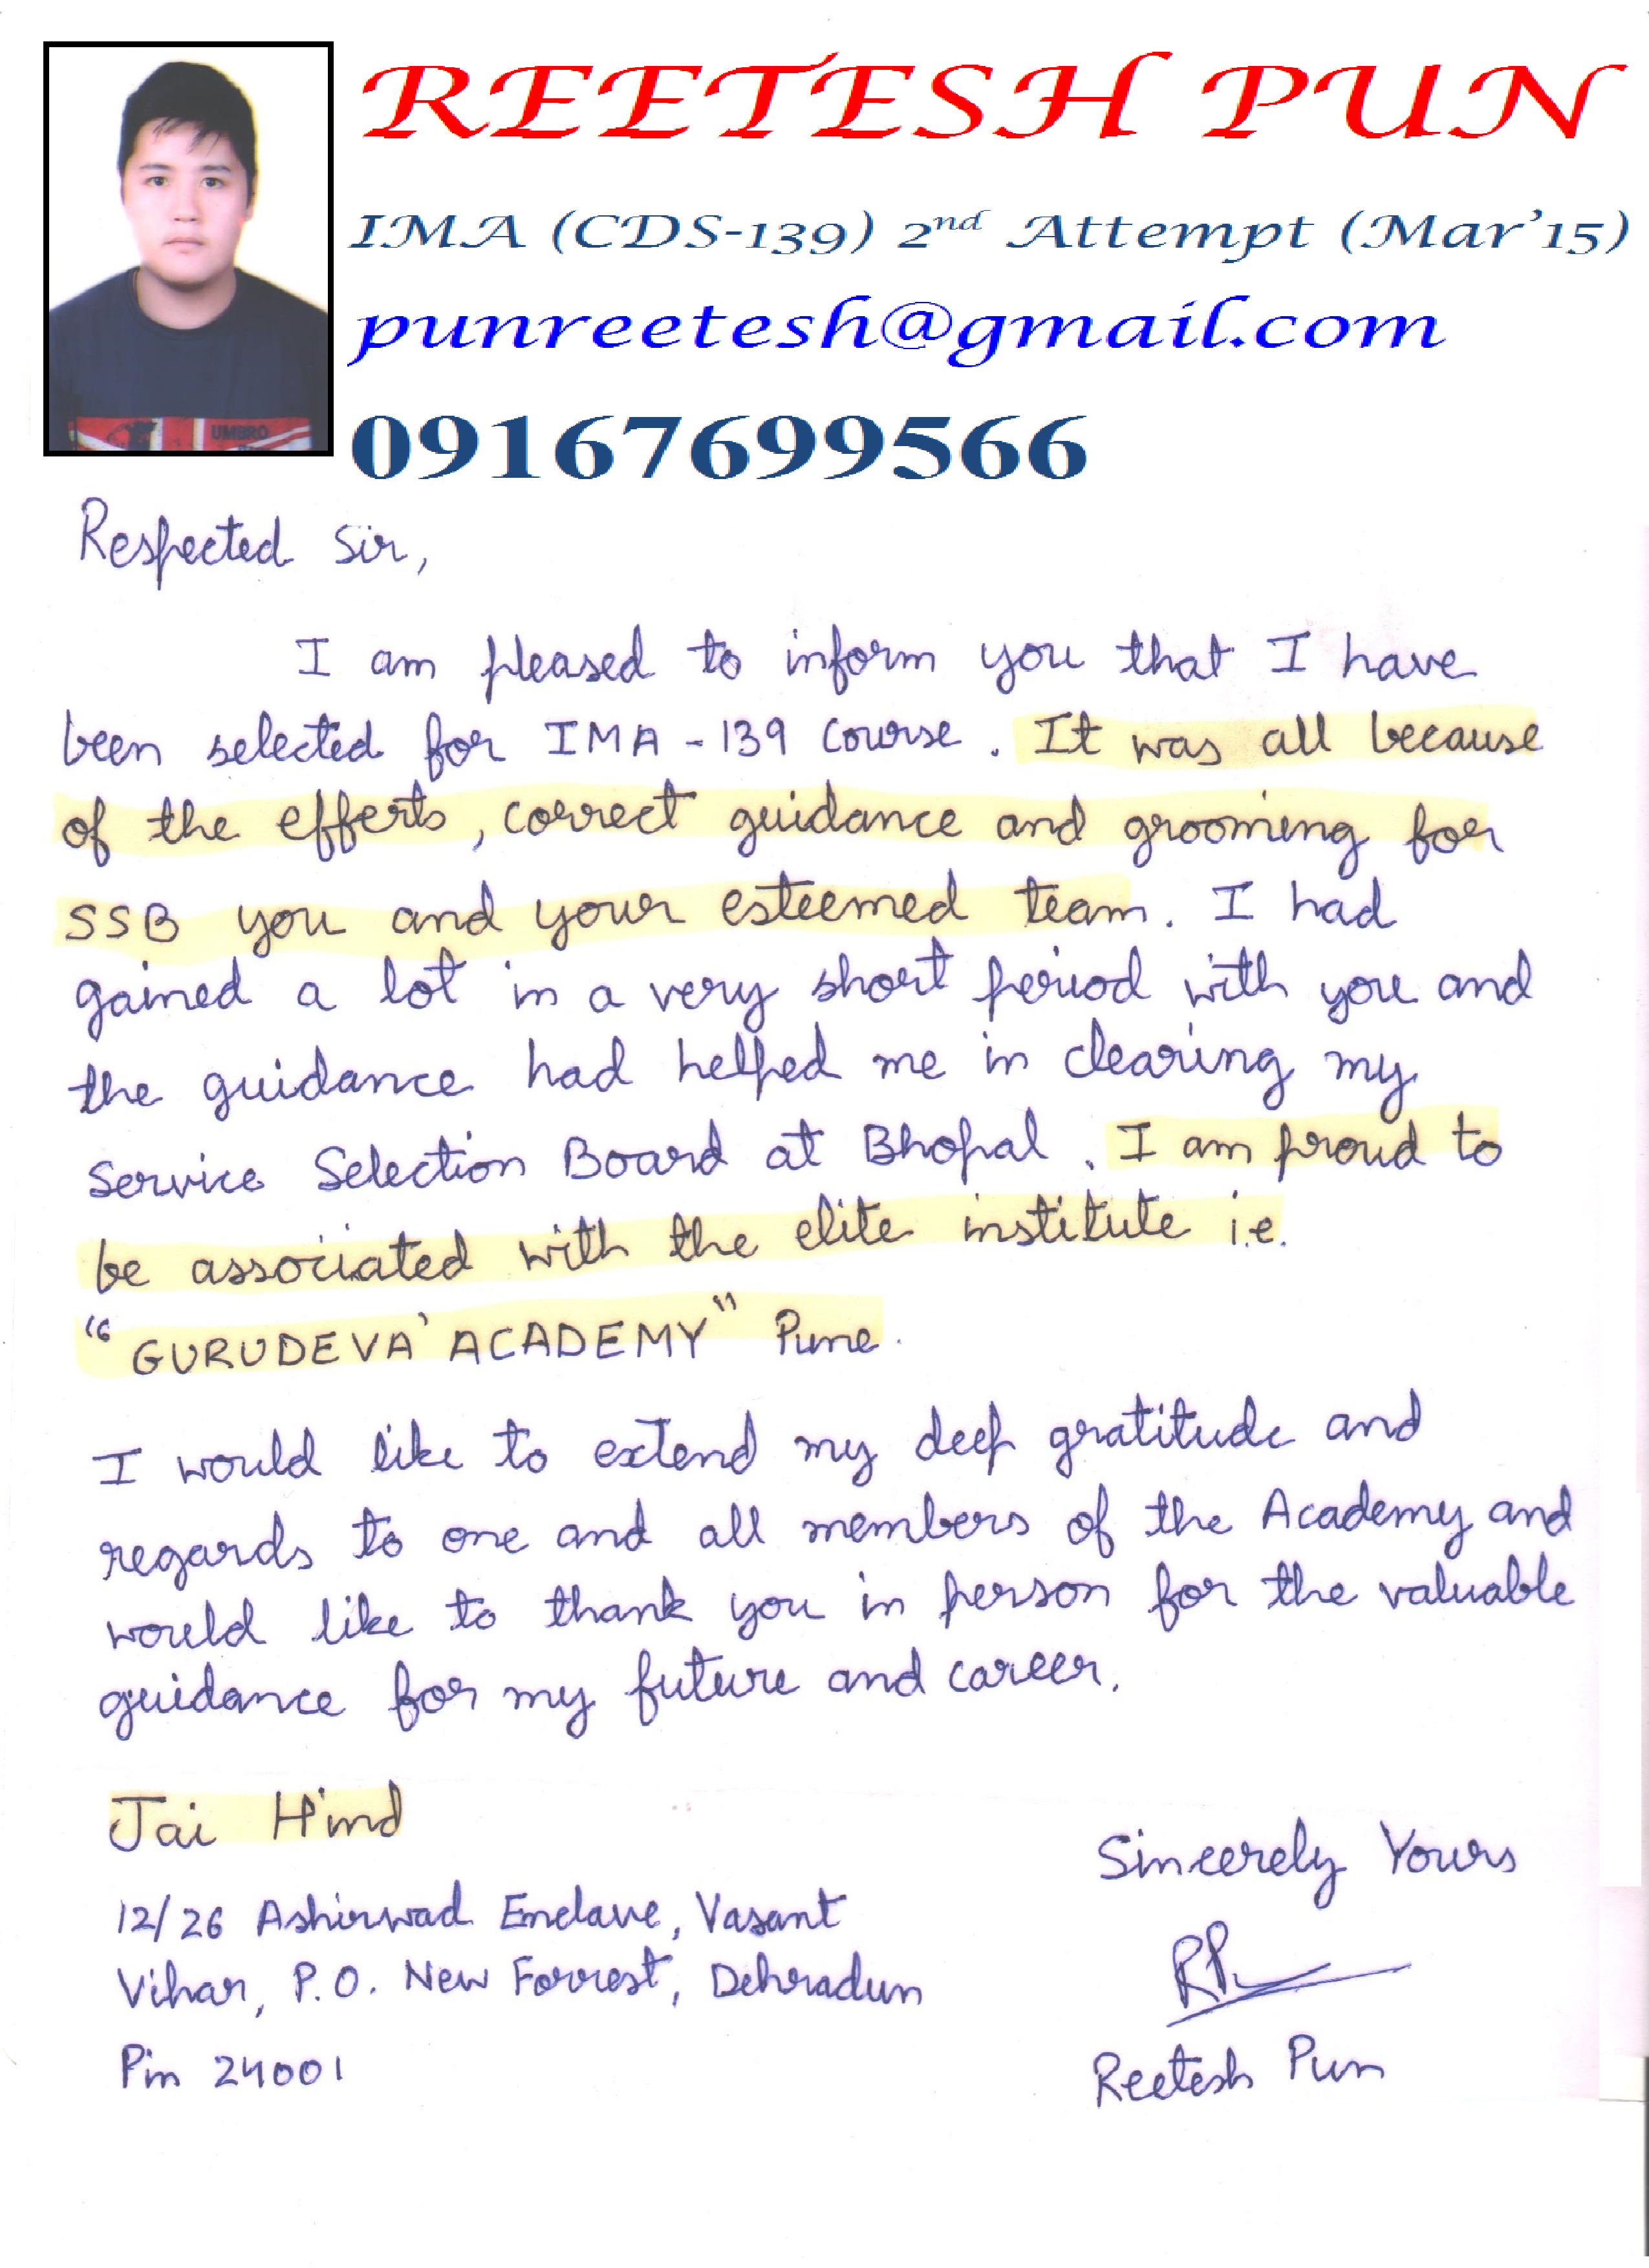 REETESH PUN
IMA (CDS-139) 2nd Attempt (Mar'15)
punreetesh@gmail.com
09167699566
UMBRO
Respected Sir,
I am pleased to inform you that I have
been selected for IMA - 139 course. It was all because
of the efferts, correct guidance and grooming for
SSB you and your esteemed team. I had
gained a lot in a very short period with you and
the guidance had helped me in clearing my
Service Selection Board at Bhopal. I am proud to
be associated with the elite institute i.e.
"GURUDEVA' ACADEMY" Pune.
I would like to extend my deep gratitude and
regards to one and all members of the Academy and
would like to thank you in person for the valuable
guidance for my future and career.
Jai Hind
Sincerely Yours
12/26 Ashirwad Enclave, Vasant
Vihar, P.O. New Forrest, Dehradun
Pin 24001
RP
Reetesh Pun